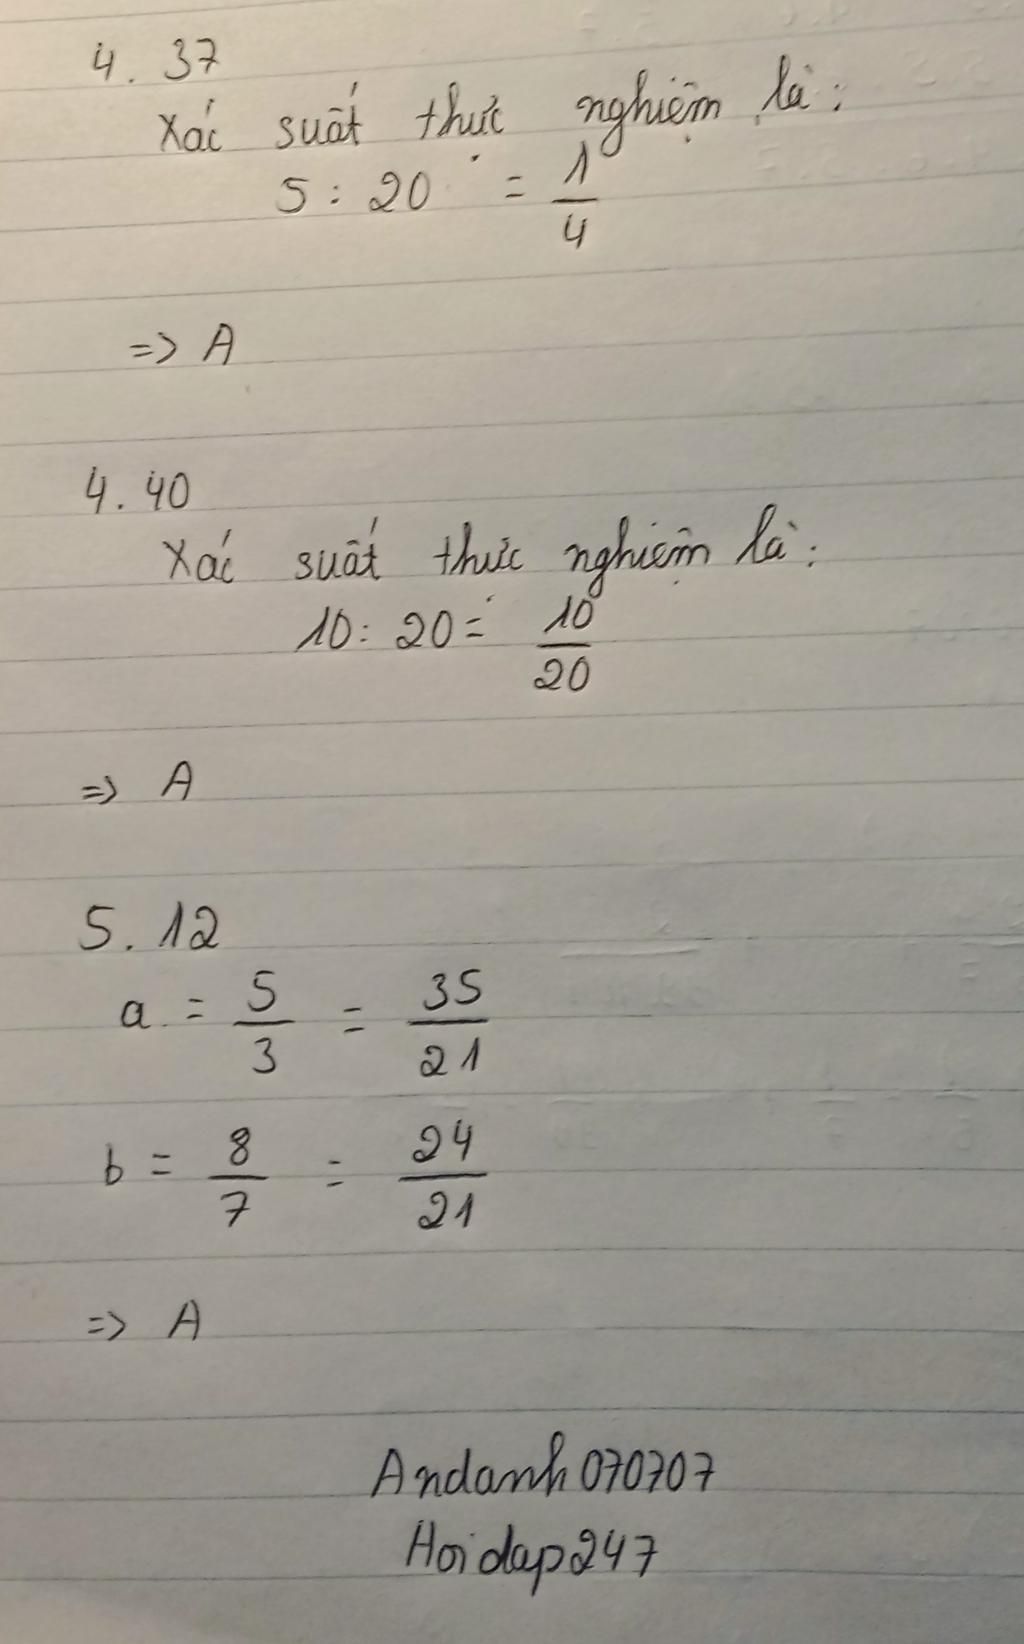 4. 37
Xác suất thực nghiệm là:
5 : 20 = 1/4
=> A
4. 40
Xác suất thực nghiệm là:
10 : 20 = 10/20
=> A
5. 12
a = 5/3 = 35/21
b = 8/7 = 24/21
=> A
Andanh070707
Hoidap247